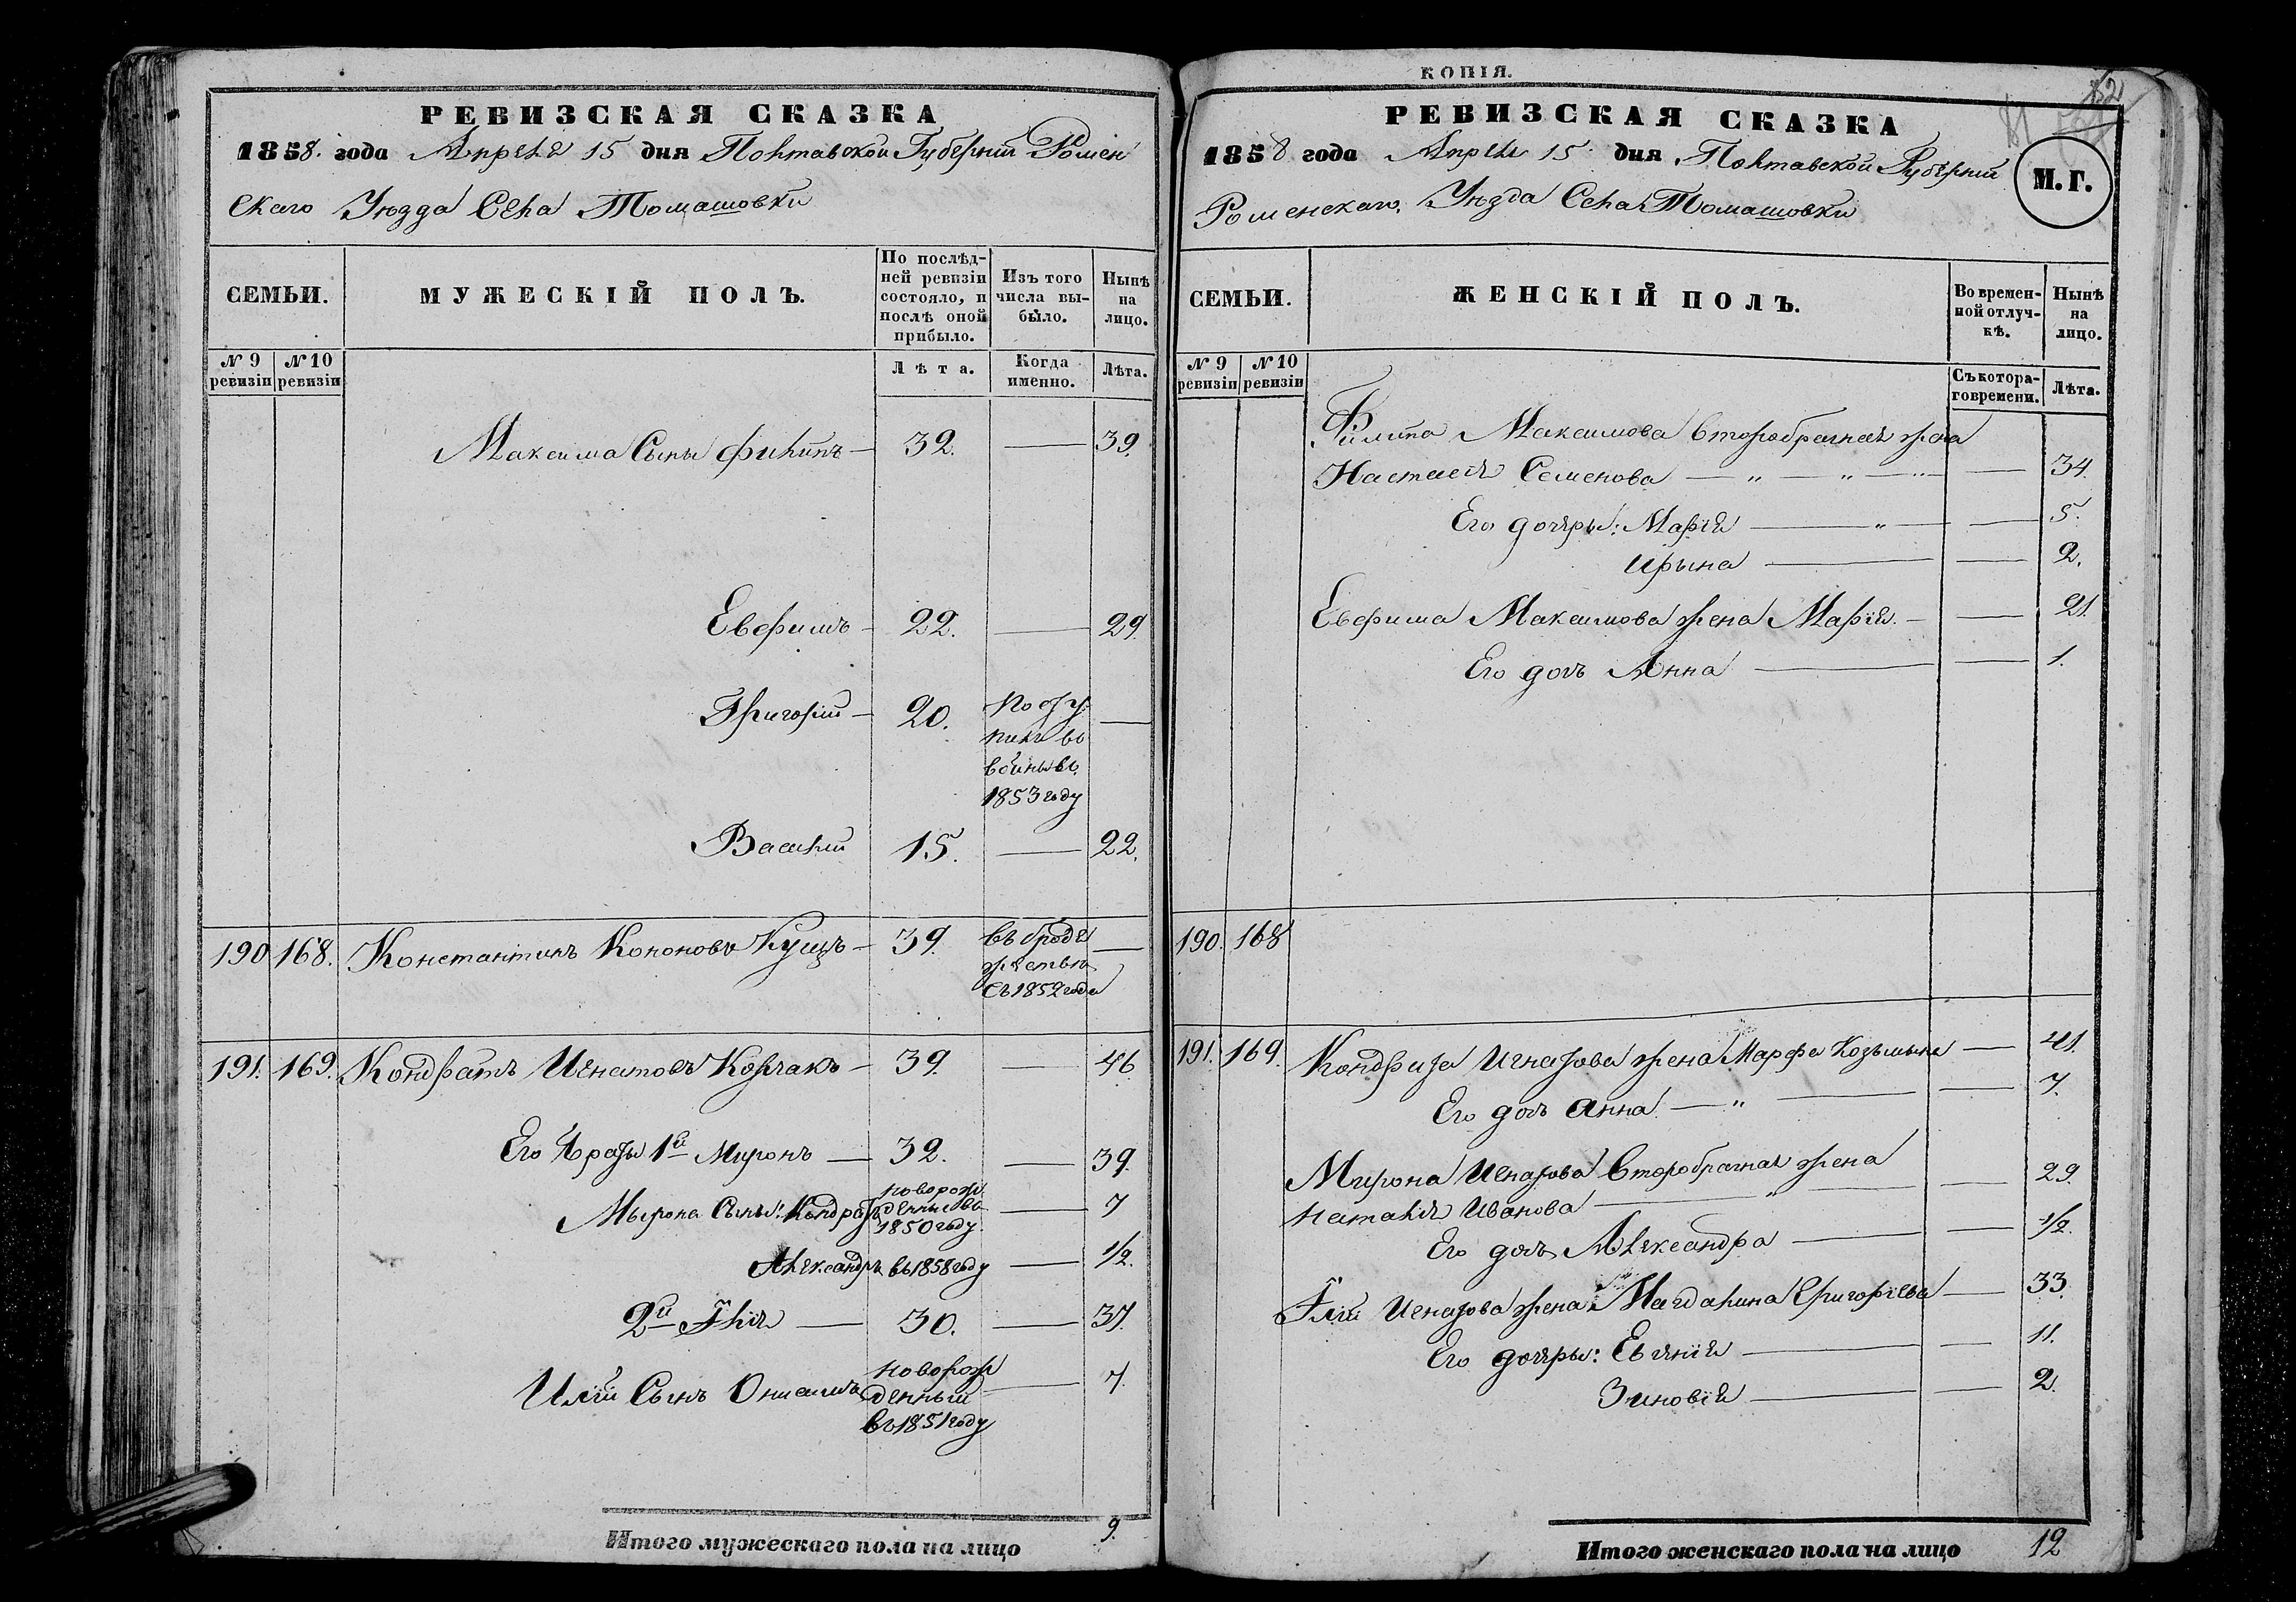 РЕВИЗСКАЯ СКАЗКА
1858. года Апреля 15 дня Полтавской Губерніи Ромен
скаго Уѣзда Села Томашовки
СЕМЬИ.
МУЖЕСКІЙ ПОЛЪ.
По послѣд-
ней ревизіи
состояло, и
послѣ оной
прибыло.
Изъ того
числа вы-
было.
Нынѣ
на
лицо.
№ 9
ревизіи
№ 10
ревизіи
Лѣта.
Когда
именно.
Лѣта.
Максима Сыны Филипъ — 32. — 39.
Евфимъ — 22. — 29.
Григорій — 20. —
въ
1853 году
Василій 15. — 22.
190 168. Константинъ Кононовъ Кущъ — 39. въ бродя —
жествѣ
съ 1852 года
191. 169. Кондратъ Игнатовъ Корчакъ — 39. — 46
Его Браты 1й Миронъ — 32. — 39.
Мырона Сыны: Кондратъ новорож
денные въ
1850 году — 7
Александръ въ 1858 году — 1/2.
2й Илія — 30. — 37.
Иліи Сынъ Онисимъ новорож
денный — 7.
въ 1851 году
Итого мужескаго пола на лицо 9.
КОПІЯ.
РЕВИЗСКАЯ СКАЗКА
1858 года Апреля 15 дня Полтавской Губерніи
М. Г.
Роменскаго Уѣзда Села Томашовки
СЕМЬИ.
ЖЕНСКІЙ ПОЛЪ.
Во времен-
ной отлуч-
кѣ.
Нынѣ
на
лицо.
№ 9
ревизіи
№ 10
ревизіи
Съ котора-
го времени.
Лѣта.
Филипа Максимова второбрачная жена
Настасія Семенова — " — " — — 34.
Его дочеры: Марія — " — — 5.
Ирына — — 2.
Евфима Максимова жена Марія. — — 21.
Его дочь Анна — — 1.
190. 168
191. 169. Кондрата Игнатова жена Марфа Козьмына — 41.
Его дочь Анна — " — — 7.
Мирона Игнатова второбрачная жена
Наталія Иванова — " — — 29.
Его дочь Александра — — 1/2.
Иліи Игнатова жена: Магдалина Григоріева — 33.
Его дочеры: Евгенія — — 11.
Зиновія — — 2.
Итого женскаго пола на лицо 12